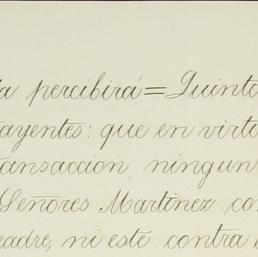 la percibirá = Quinto
ayentes: que en virtu
ansaccion ningun
Señores Martinez con
eadre, ni este contra